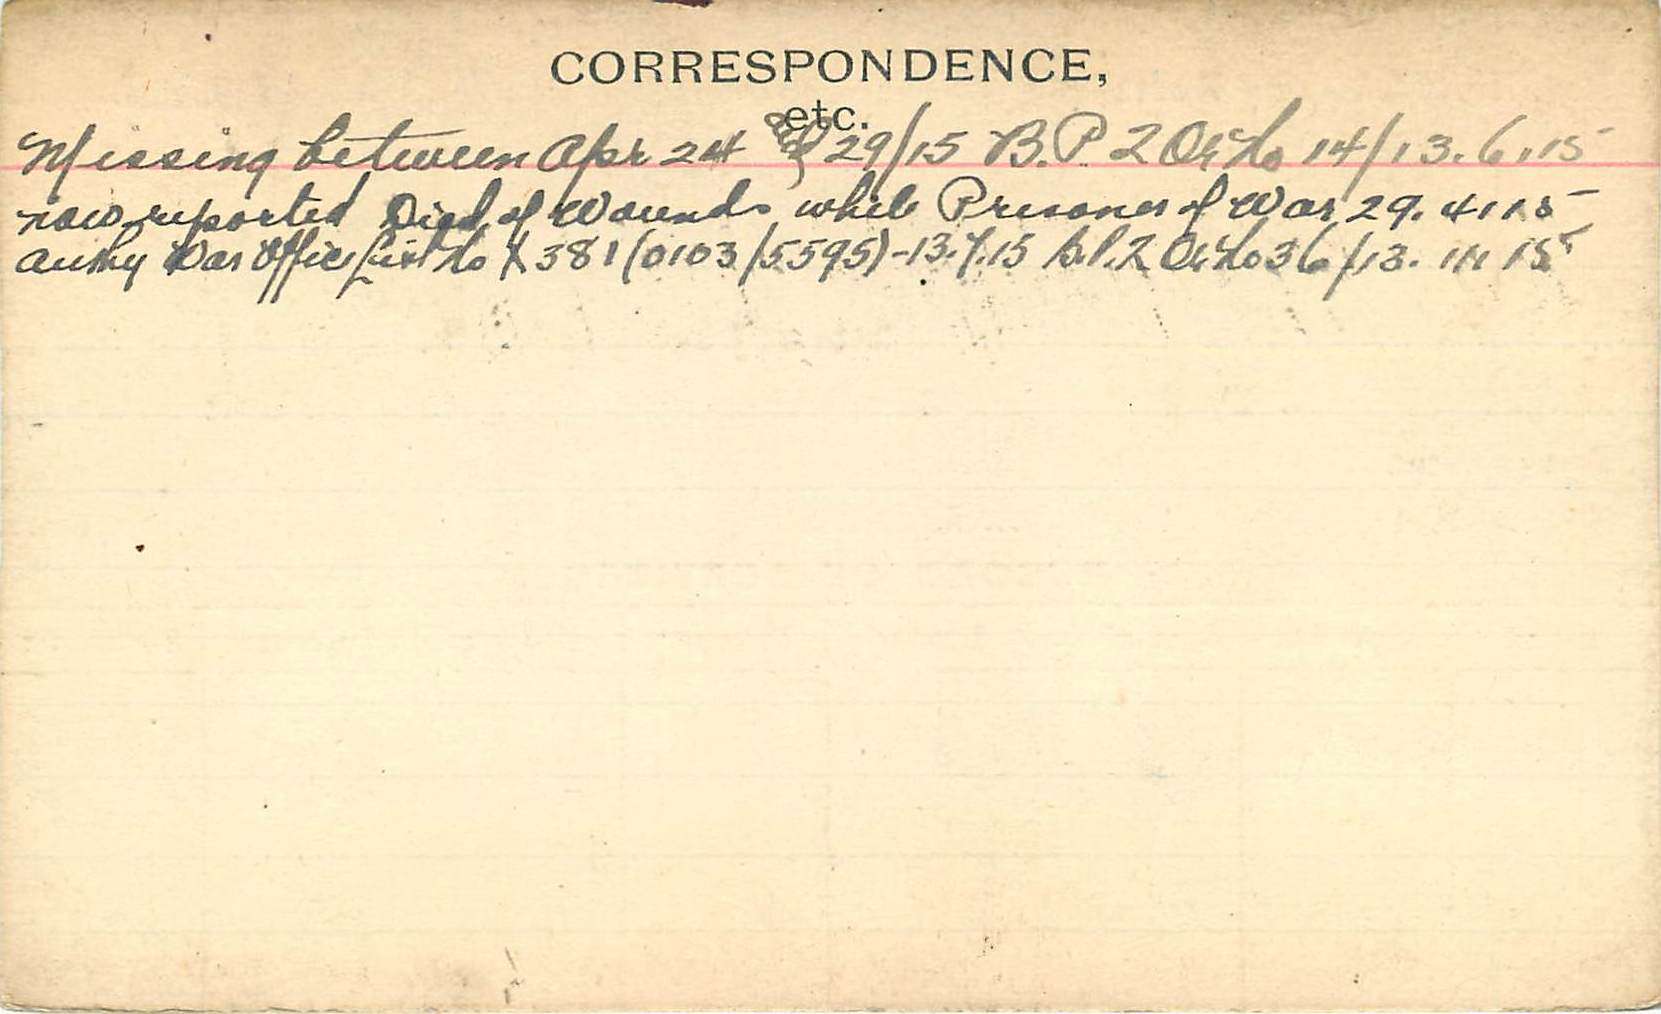 CORRESPONDENCE,
etc.
Missing between Apr 24 & 29/15 B.P. 2 Or No 14/13.6.15
now reported Died of Wounds while Prisoner of War 29.4.15
authy War Office List No X381 (0103/5595)-13.7.15 B.P. 2 Or No 36/13.